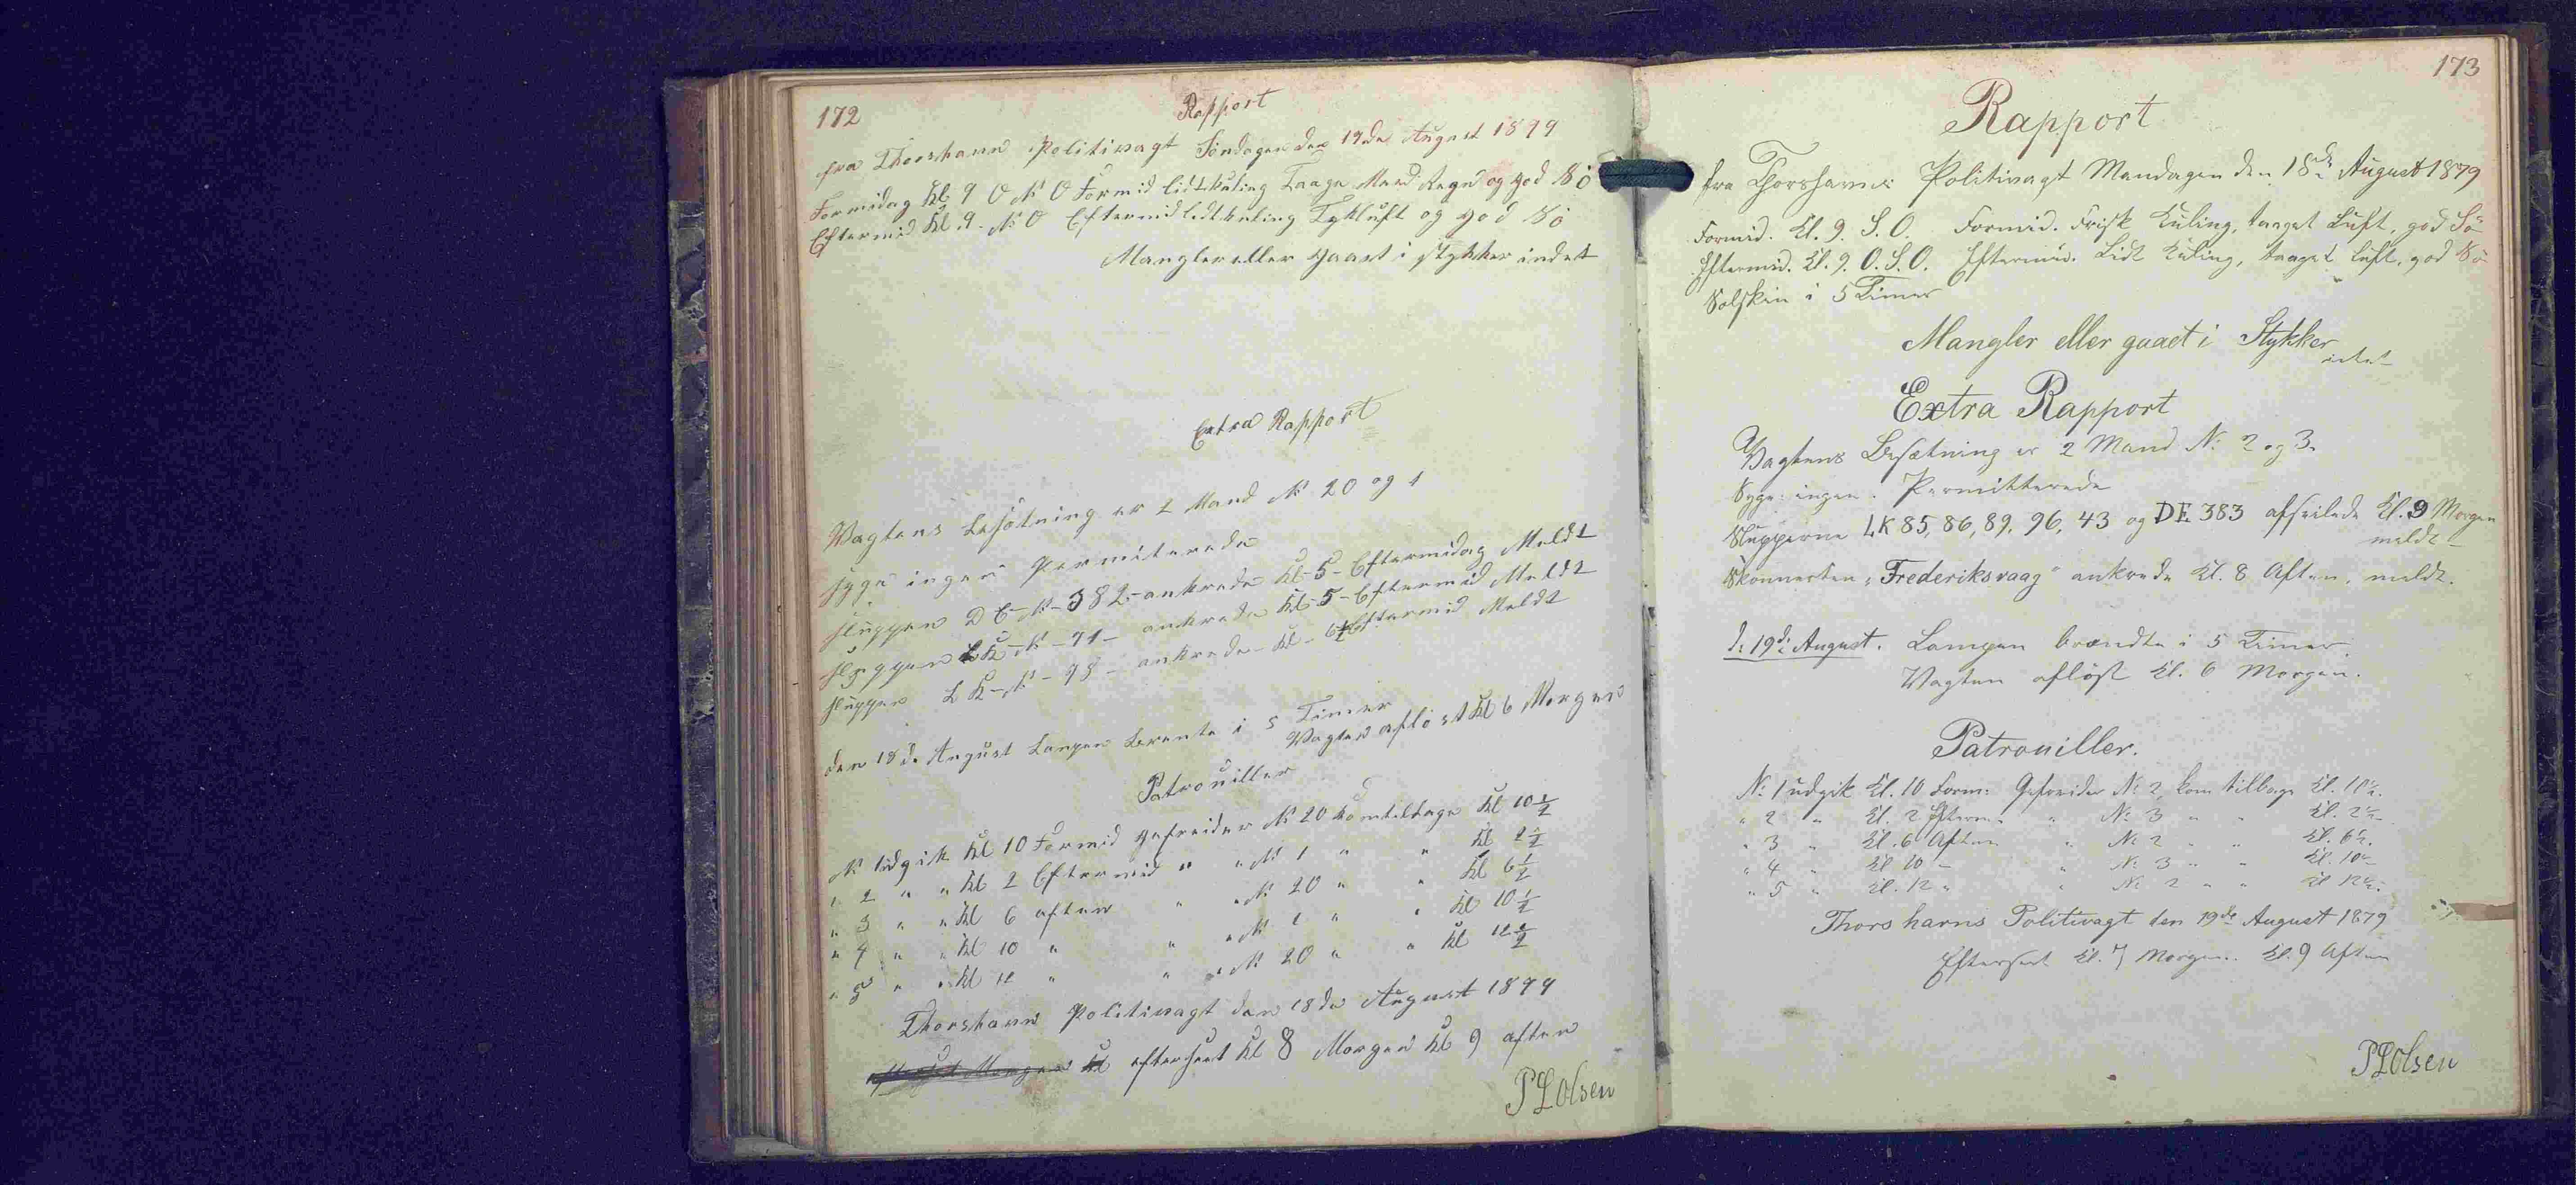 172
Rapport
fra Thorshavn Politivagt Söndagen den 17de August 1879
Formidag Kl 9 O N O Formid lidt kuling Taage Med Regn og god Sö
Eftermid Kl 9 - N O Eftermid lidt kuling Tykluft og god Sö
Mangler eller gaaet i stykker indet
Extra Rapport
Vagtens besötning er 2 Mand No 20 og 1
syge ingen Permiterede
sluppen D E - No - 382 - ankrede Kl - 5 - Eftermidag Meldt
sluppen L K - No - 91 - ankrede Kl - 5 - Eftermid Meldt
sluppen L K - No - 98 - ankrede - Kl - 6½ Eftermid Meldt
den 18de August Lampen brente i 5 Timer
Vagten aflöst Kl 6 Morgen
Patrouiller
No 1 udgik Kl 10 Formid gefreider No 20 kom tilbage Kl 10½
" 2 " " Kl 2 Eftermid " " No 1 " " Kl 2½
" 3 " " Kl 6 aften " " No 20 " " Kl 6½
" 4 " " Kl 10 " " " No 1 " " Kl 10½
" 5 " " Kl 12 " " " No 20 " " Kl 12½
Thorshavn Politivagt den 18de August 1879
efterseet Kl 8 Morgen Kl 9 aften
PLOlsen
173
Rapport
fra Thorshavns Politivagt Mandagen den 18de August 1879
Formid. Kl. 9. S. O. Formid. Frisk Kuling, taaget Luft, god Sö
Eftermid. Kl. 9. O. S. O. Eftermid. Lidt Kuling, taaget Luft, god Sö
Solskin i 5 Timer
Mangler eller gaaet i Stykker
intet
Extra Rapport
Vagtens Besætning er 2 Mand No 2 og 3.
Syge: ingen. Permitterede
Slupperne LK 85, 86, 89, 96, 43 og DE 383 afseilede Kl. 9 Morgen
meldt
Skonnerten "Frederiksvaag" ankrede Kl. 8 Aften, meldt.
d. 19de August. Lampen brændte i 5 Timer.
Vagten afløst Kl. 6 Morgen.
Patrouiller.
No 1 udgik Kl. 10 Form: Gefreider No 2 kom tilbage Kl. 10½.
" 2 " Kl. 2 Efterm. " No 3 " " Kl. 2½
" 3 " Kl. 6 Aften " No 2 " " Kl. 6½.
" 4 " Kl 10 - " No 3 " " Kl. 10½
" 5 " Kl. 12 " " No 2 " " Kl 12½.
Thorshavns Politivagt den 19de August 1879
Efterseet Kl. 7 Morgen. Kl. 9 Aften
PLOlsen